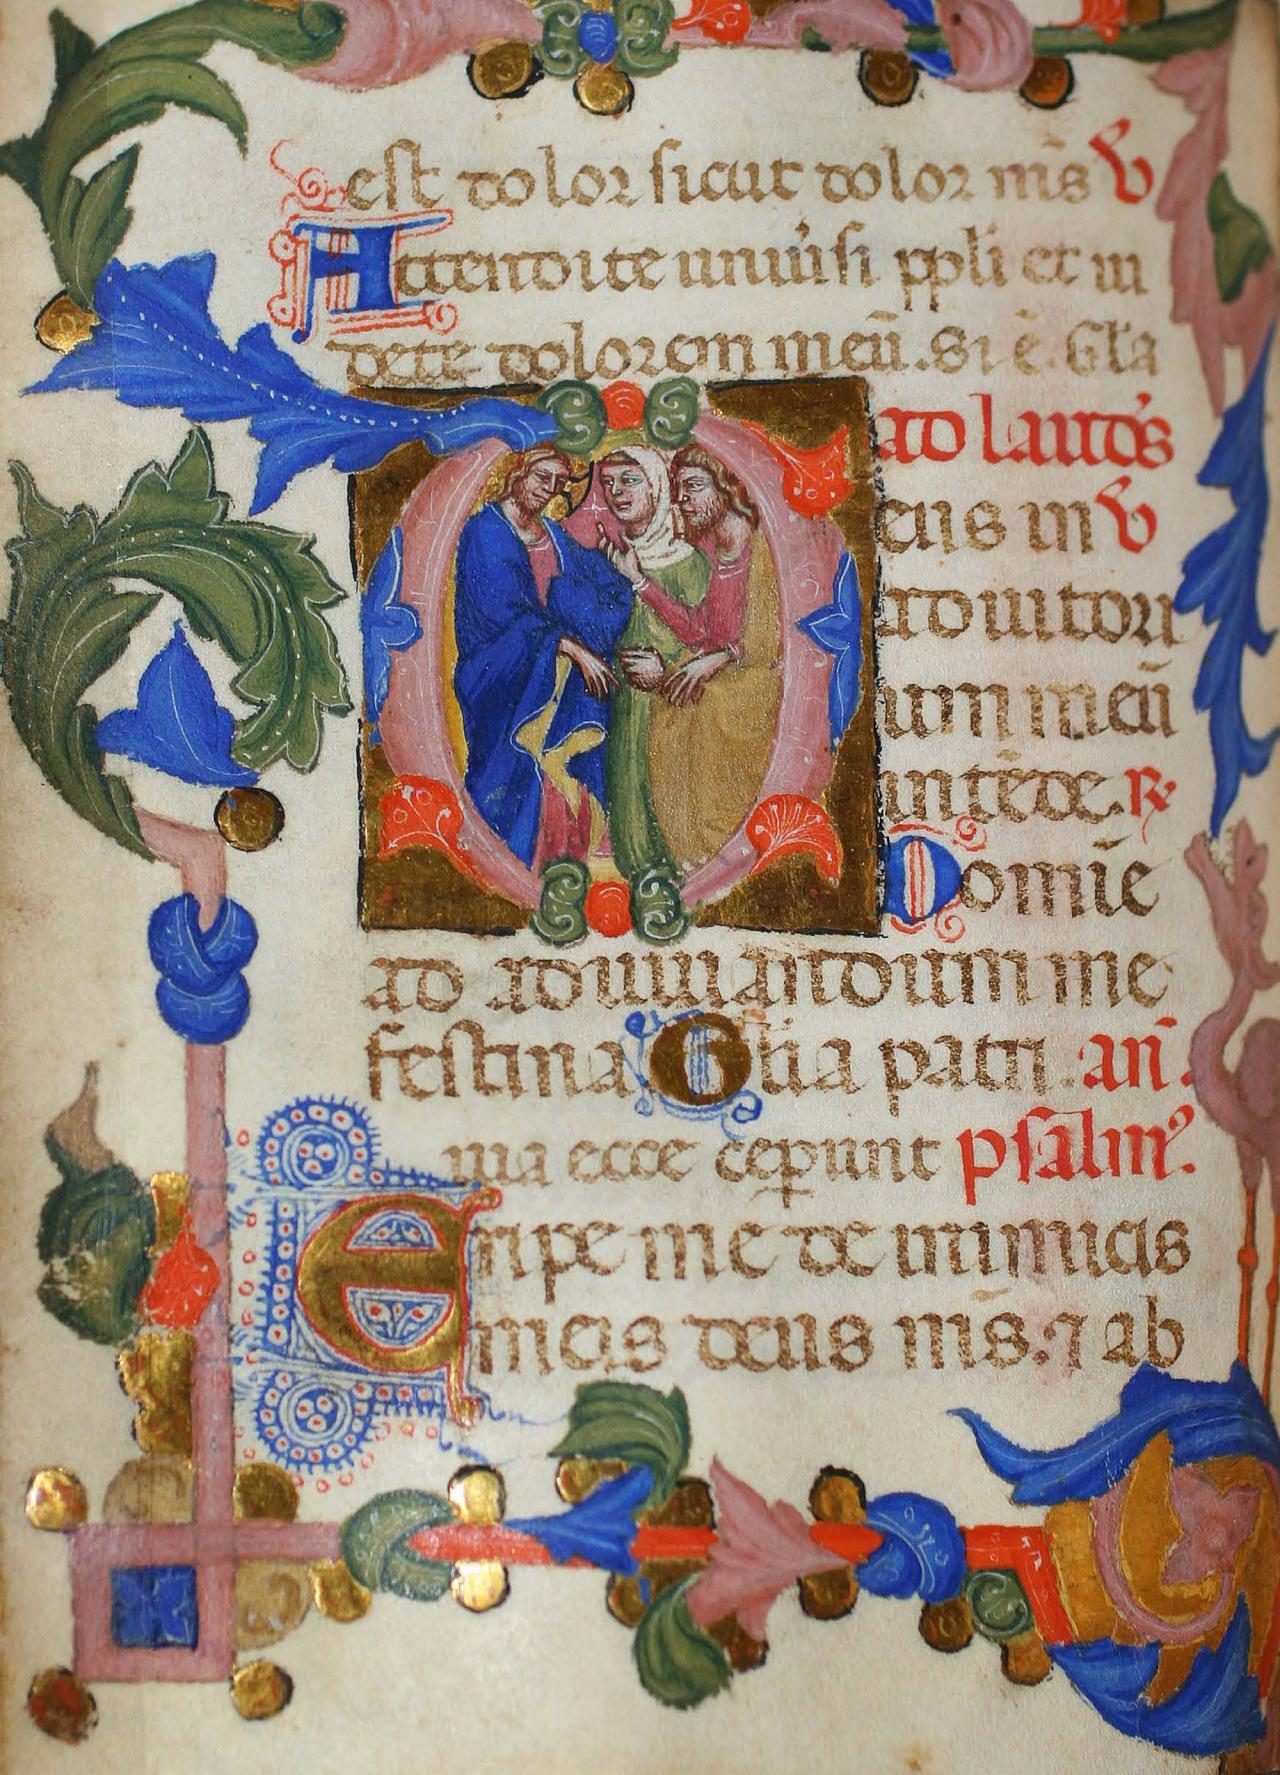 est dolor sicut dolor m̄s ℣
Attendite uniu̾si ppli et ui
dete dolorem meū. Si ē. Gła
ad laudes
eus in ℣
adiutori
um meū
intēde. ℟
Domīe
ad adiuuandum me
festina Glia patri. an̄.
ma ecce ceperunt psalm⁹.
Eripe me de inimicis
micis deus m̄s. ⁊ ab